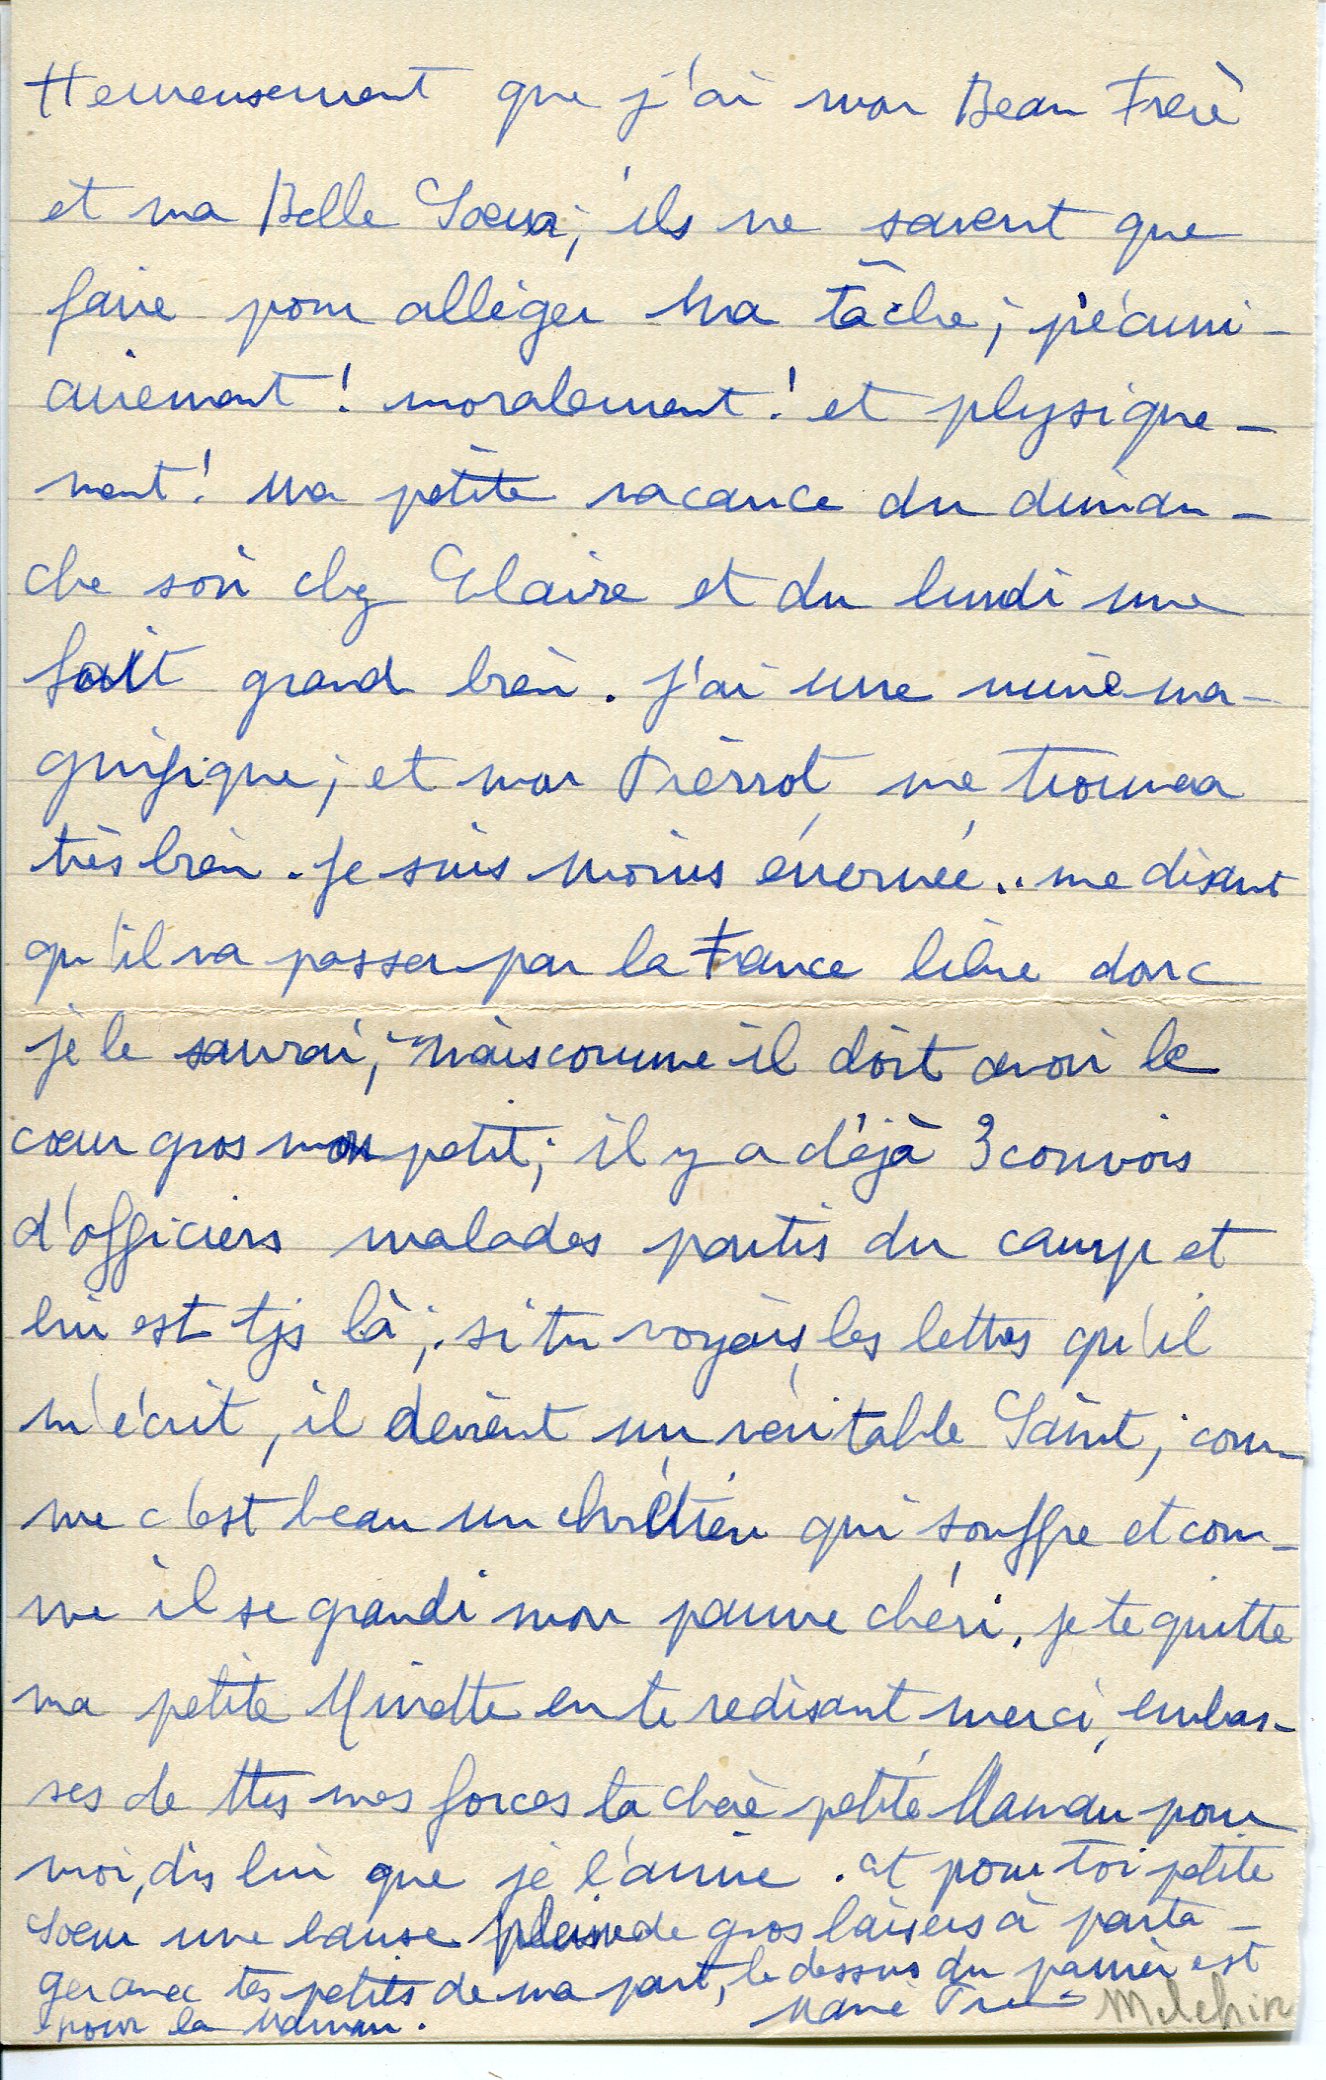 Heureusement que j'ai mon Beau Frère
et ma Belle Soeur, ils ne savent que
faire pour alléger ma tâche, pécuni-
airement! moralement! et physique-
ment! ma petite vacance du diman-
che soir chez Claire et du lundi me
fait grand bien. j'ai une mine ma-
gnifique; et mon Pierrot me trouvera
très bien. Je suis moins énervée.. me disant
qu'il va passer par la France libre donc
je le saurai, mais comme il doit avoir le
coeur gros mon petit; il y a déjà 3 convois
d'officiers malades partis du camp et
lui est tjs là; si tu voyais les lettres qu'il
m'écrit, il devient un véritable Saint; com-
me c'est beau un chrétien qui souffre et com-
me il se grandi mon pauvre chéri. je te quitte
ma petite Minette en te redisant merci, embas-
ses de ttes mes forces ta chère petite Maman pour
moi, dis lui que je l'aime. et pour toi petite
Soeur une pleine de gros baisers à parta-
ger avec tes petits de ma part, le dessus du panier est
pour la Maman. Marie
Melchior